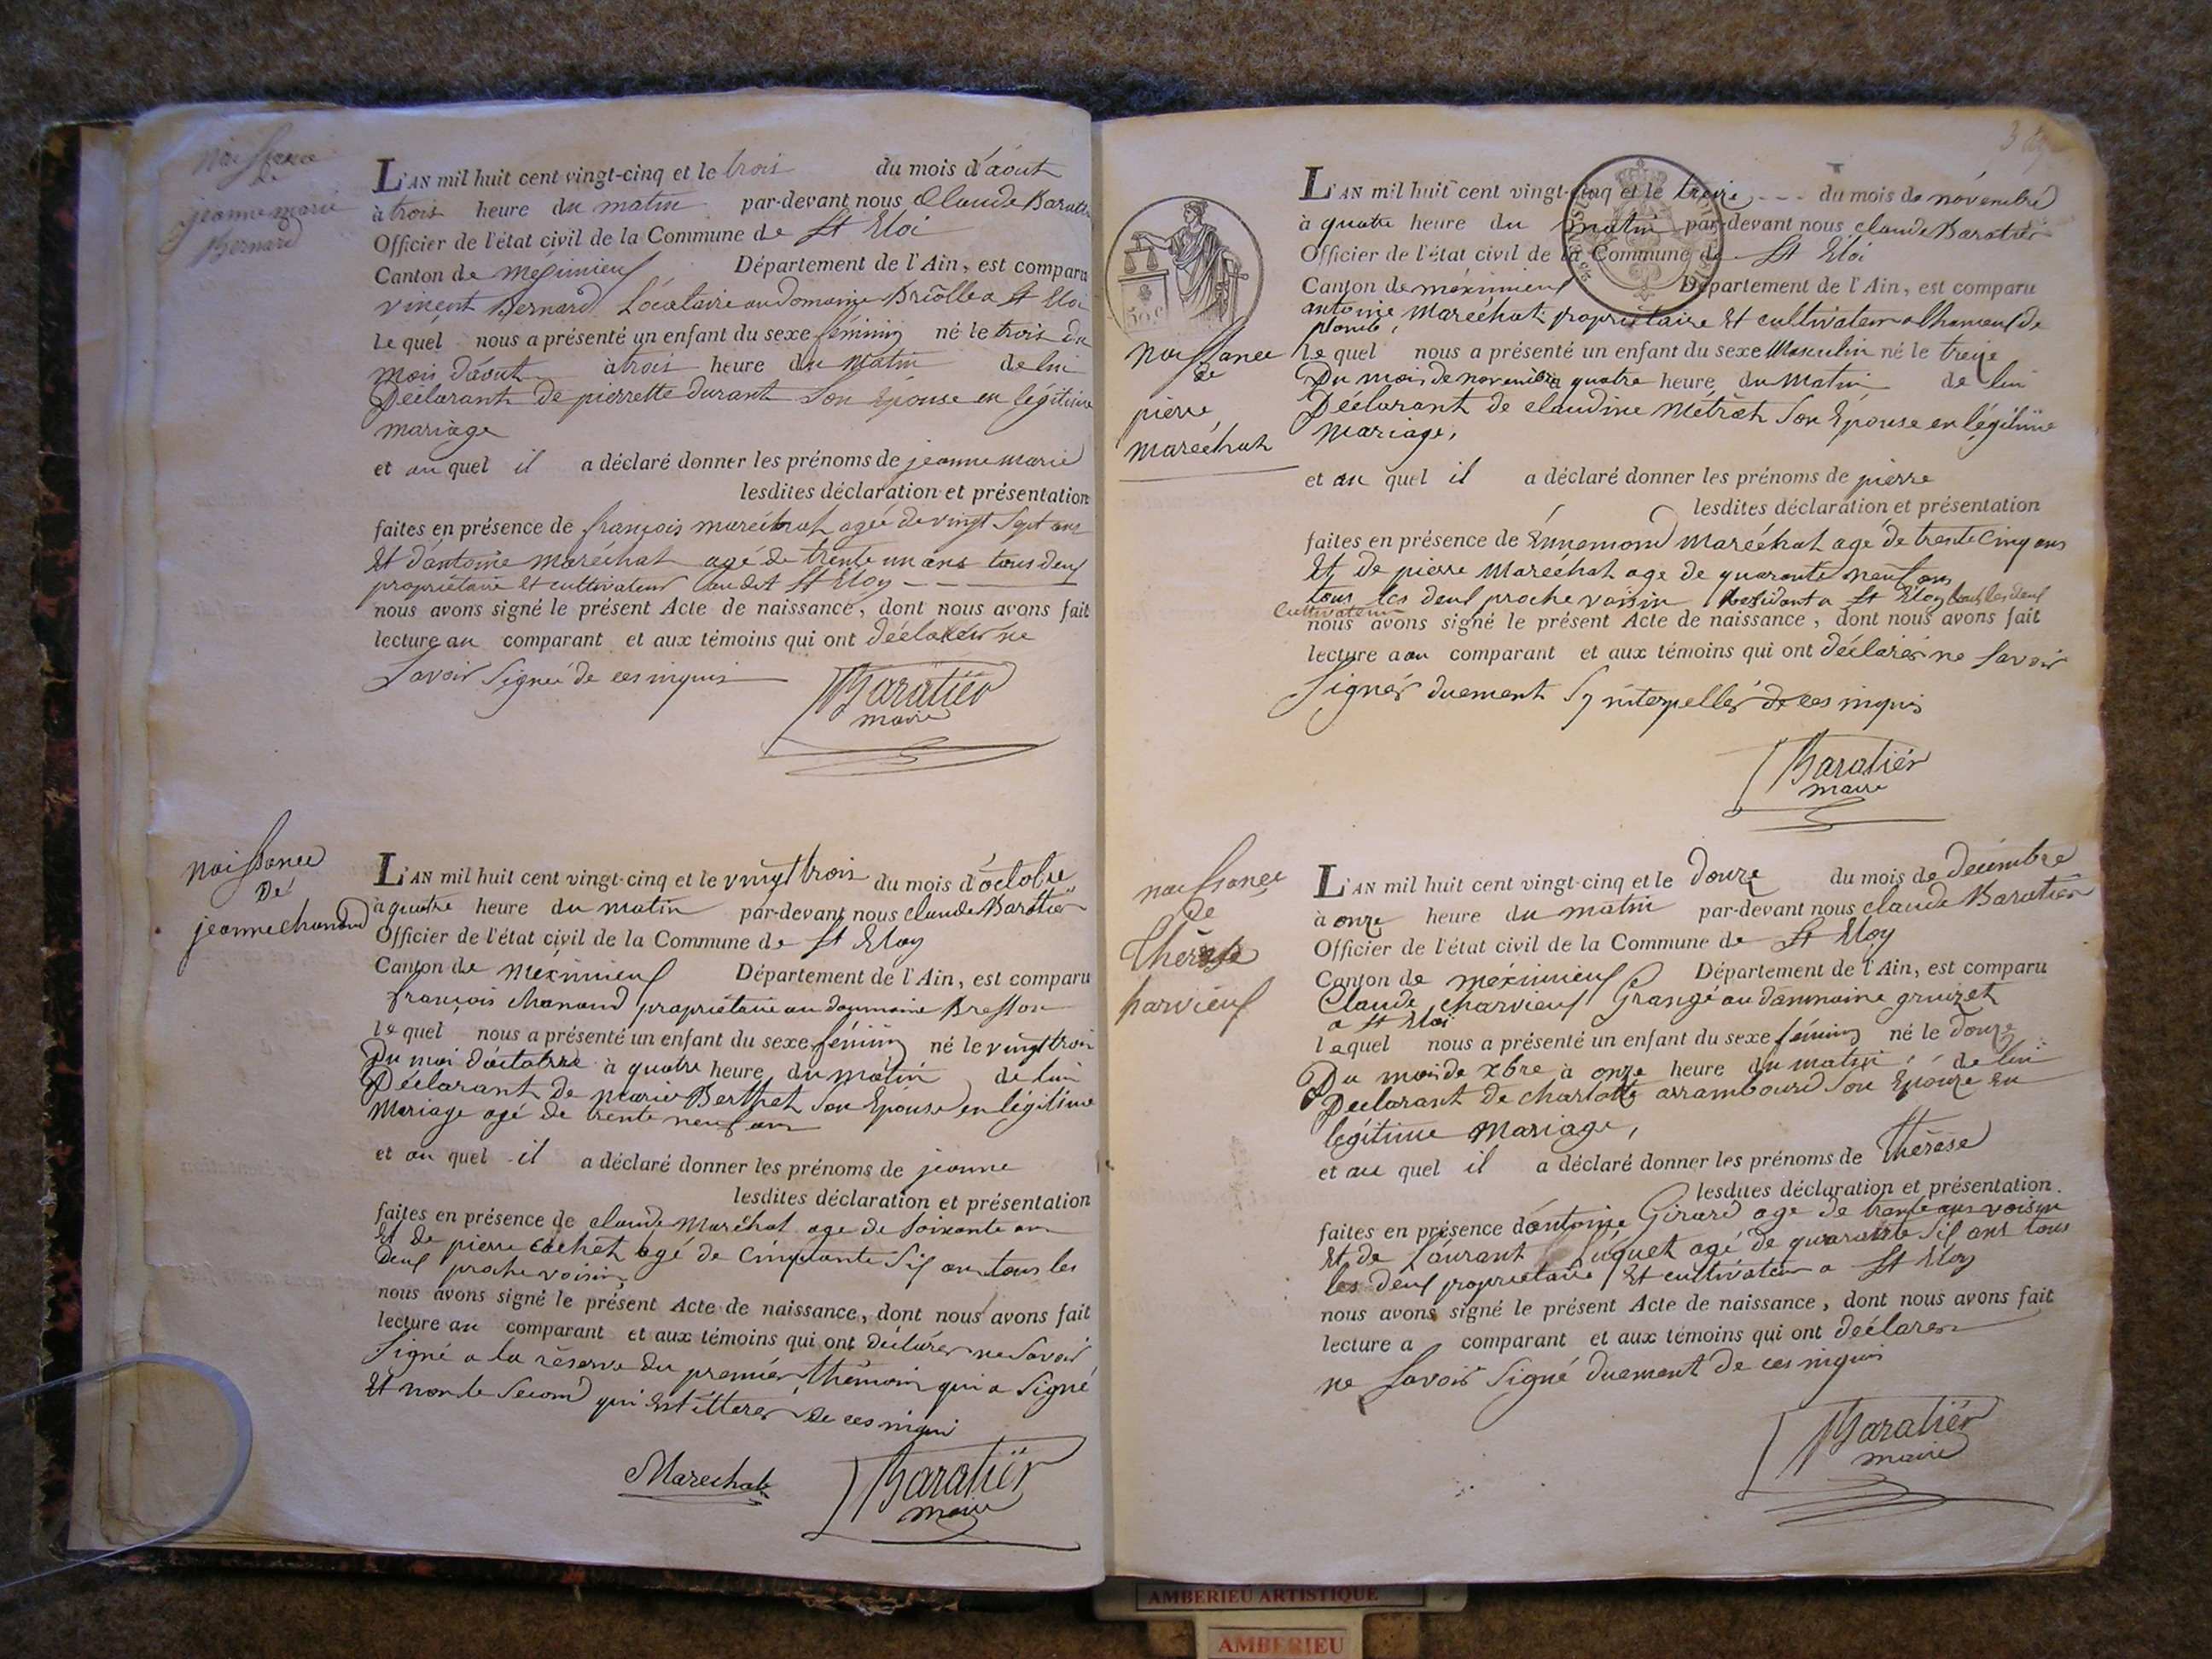 naissance
de
jeanne marie
Bernard
L'AN mil huit cent vingt-cinq et le trois du mois d'aout
à trois heure du matin par-devant nous Claude Baratier
Officier de l'état civil de la Commune de St Eloi
Canton de meximieux Département de l'Ain, est comparu
vincent Bernard Locataire au domaine Briolle a St Eloi
le quel nous a présenté un enfant du sexe féminin né le trois du
mois d'aout à trois heure du matin de lui
Déclarant de pierrette durant Son Epouse en légitime
mariage
et au quel il a déclaré donner les prénoms de jeanne marie
lesdites déclaration et présentation
faites en présence de françois maréchat agée de vingt Sept ans
Et d'antoine maréchat agé de trente un ans tous deux
propriétaire Et cultivateur audit St Eloy
nous avons signé le présent Acte de naissance, dont nous avons fait
lecture au comparant et aux témoins qui ont déclarer ne
Savoir Signée de ces inquis
Baratier
maire
naissance
De
jeanne chanand
L'AN mil huit cent vingt-cinq et le vingt trois du mois d'octobre
à quatre heure du matin par-devant nous claude Baratier
Officier de l'état civil de la Commune de St Eloy
Canton de méximieux Département de l'Ain, est comparu
françois chanand propriétaire au doumaine Bresson
le quel nous a présenté un enfant du sexe féminin né le vingt trois
Du moi d'octobre à quatre heure du matin de lui
Déclarant de marie Berthet Son Epouse en légitime
Mariage agé de trente neuf ans
et au quel il a déclaré donner les prénoms de jeanne
lesdites déclaration et présentation
faites en présence de claude Maréchat age de Soixante an
Et de pierre cochet agé de cinquante Six an tous les
deux proche voisin
nous avons signé le présent Acte de naissance, dont nous avons fait
lecture au comparant et aux témoins qui ont déclarer ne Savoir
Signé a la réserve du premier thémoin qui a Signé
Et non le Second qui Est ittérer de ces inqui
Marechat
Baratier
maire
50 c
naissance
de
pierre
maréchat
L'AN mil huit cent vingt-cinq et le treize du mois de novembre
à quatre heure du matin par-devant nous claude Baratier
Officier de l'état civil de la Commune de St Eloi
Canton de meximieux Département de l'Ain, est comparu
antoine Maréchat propriétaire Et cultivateur a lhameux de
plombe,
le quel nous a présenté un enfant du sexe Masculin né le treize
Du mois de novembre à quatre heure du Matin de lui
Déclarant de claudine Métrat Son Epouse en légitime
Mariage,
et au quel il a déclaré donner les prénoms de pierre
lesdites déclaration et présentation
faites en présence de Ennemond Maréchat agé de trente Cinq ans
Et de pierre Marechat age de quarante neuf ans
tous les deux proche voisin Residant a St Eloy tous les deux
Cultivateur
nous avons signé le présent Acte de naissance, dont nous avons fait
lecture a au comparant et aux témoins qui ont déclarér ne Savoir
Signér duement Sy interpeller de ces inquis
Baratier
maire
naissance
de
Thérèse
harvieux
L'AN mil huit cent vingt-cinq et le Douze du mois de Décembre
à onze heure du matin par-devant nous claude Baratier
Officier de l'état civil de la Commune de St Eloy
Canton de meximieux Département de l'Ain, est comparu
Claude charvieux Grangé au dommaine gruizet
a St Eloi
lequel nous a présenté un enfant du sexe féminin né le Douze
Du mois de xbre à onze heure du matin de lui
Déclarant de charlotte arrambourd Son Epouze En
légitime Mariage,
et au quel il a déclaré donner les prénoms de Thérèse
lesdites déclaration et présentation
faites en présence d'antoine Girard age de trante ans voisin
Et de Laurant Luquet agé de quarante Six ans tous
les deux propriétaire Et cultivateur a St Eloy
nous avons signé le présent Acte de naissance, dont nous avons fait
lecture a comparant et aux témoins qui ont déclarer
ne Savoir Signé duement de ces inquis
Baratier
maire
AMBERIEU ARTISTIQUE
AMBERIEU